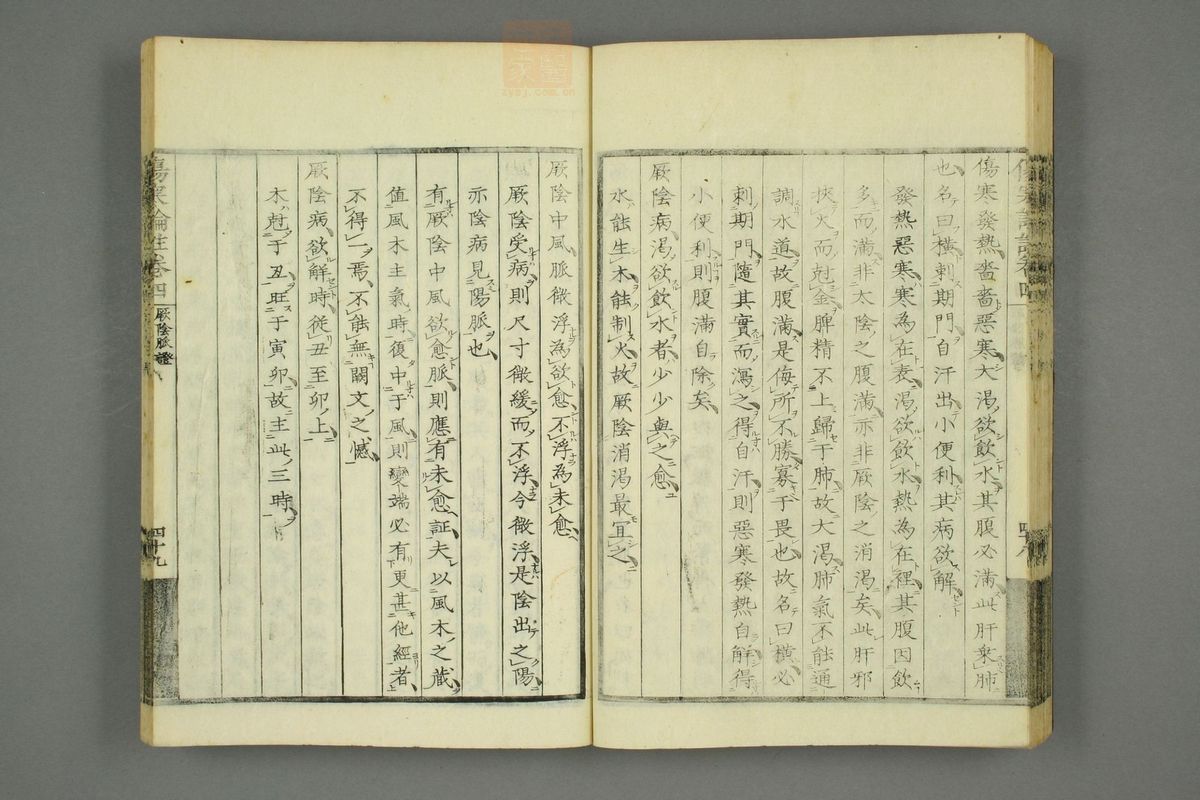 傷寒發熱嗇嗇惡寒大渴欲飲水其腹必滿此肝乘肺
也名曰橫刺期門自汗出小便利其病欲解
發熱惡寒寒為在表渴欲飲水熱為在裡其腹因飲
多而滿非太陰之腹滿亦非厥陰之消渴矣此肝邪
挾火而尅金脾精不上歸于肺故大渴肺氣不能通
調水道故腹滿是侮所不勝寡于畏也故名曰橫必
刺期門隨其實而瀉之得自汗則惡寒發熱自解得
小便利則腹滿自除矣
厥陰病渴欲飲水者少少與之愈
水能生木能制火故厥陰消渴最宜之
厥陰中風脈微浮為欲愈不浮為未愈
厥陰受病則尺寸微緩而不浮今微浮是陰出之陽
亦陰病見陽脈也
有厥陰中風欲愈脈則應有未愈証夫以風木之藏
值風木主氣時復中于風則變端必有更甚他經者
不得一焉不能無闕文之憾
厥陰病欲解時從丑至卯上
木尅于丑旺于寅卯故主此三時
傷寒論註卷四
厥陰脈證
四十九
zysj.com.cn